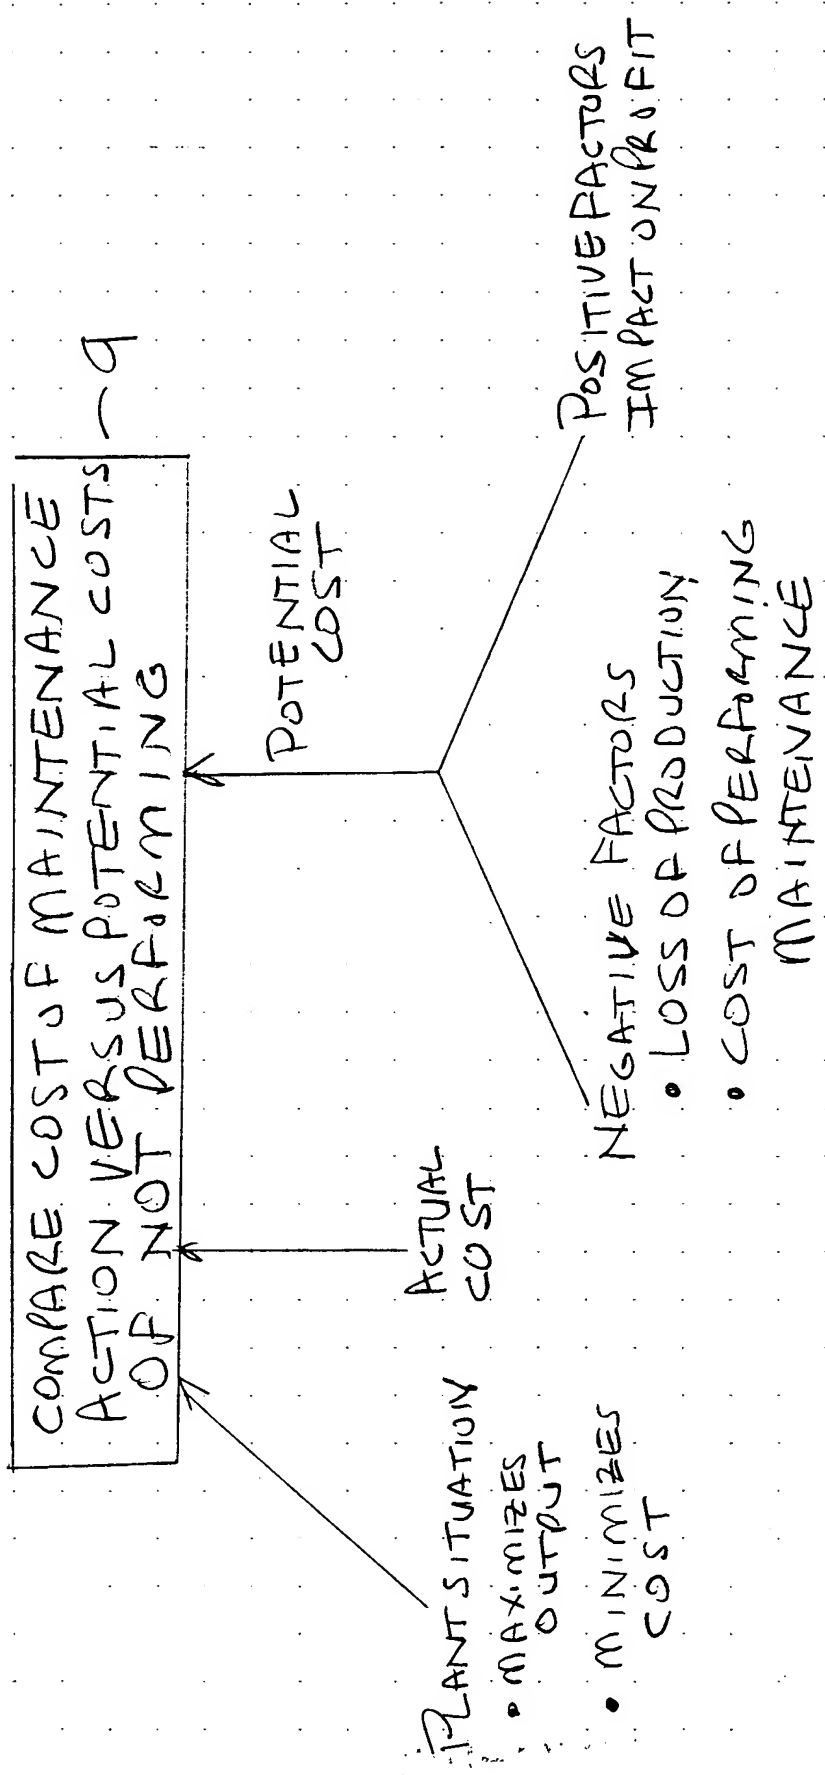 COMPARE COST OF MAINTENANCE
ACTION VERSUS POTENTIAL COSTS
OF NOT PERFORMING
9
PLANT SITUATION
• MAXIMIZES
OUTPUT
• MINIMIZES
COST
ACTUAL
COST
POTENTIAL
COST
NEGATIVE FACTORS
• LOSS OF PRODUCTION
• COST OF PERFORMING
MAINTENANCE
POSITIVE FACTORS
IMPACT ON PROFIT